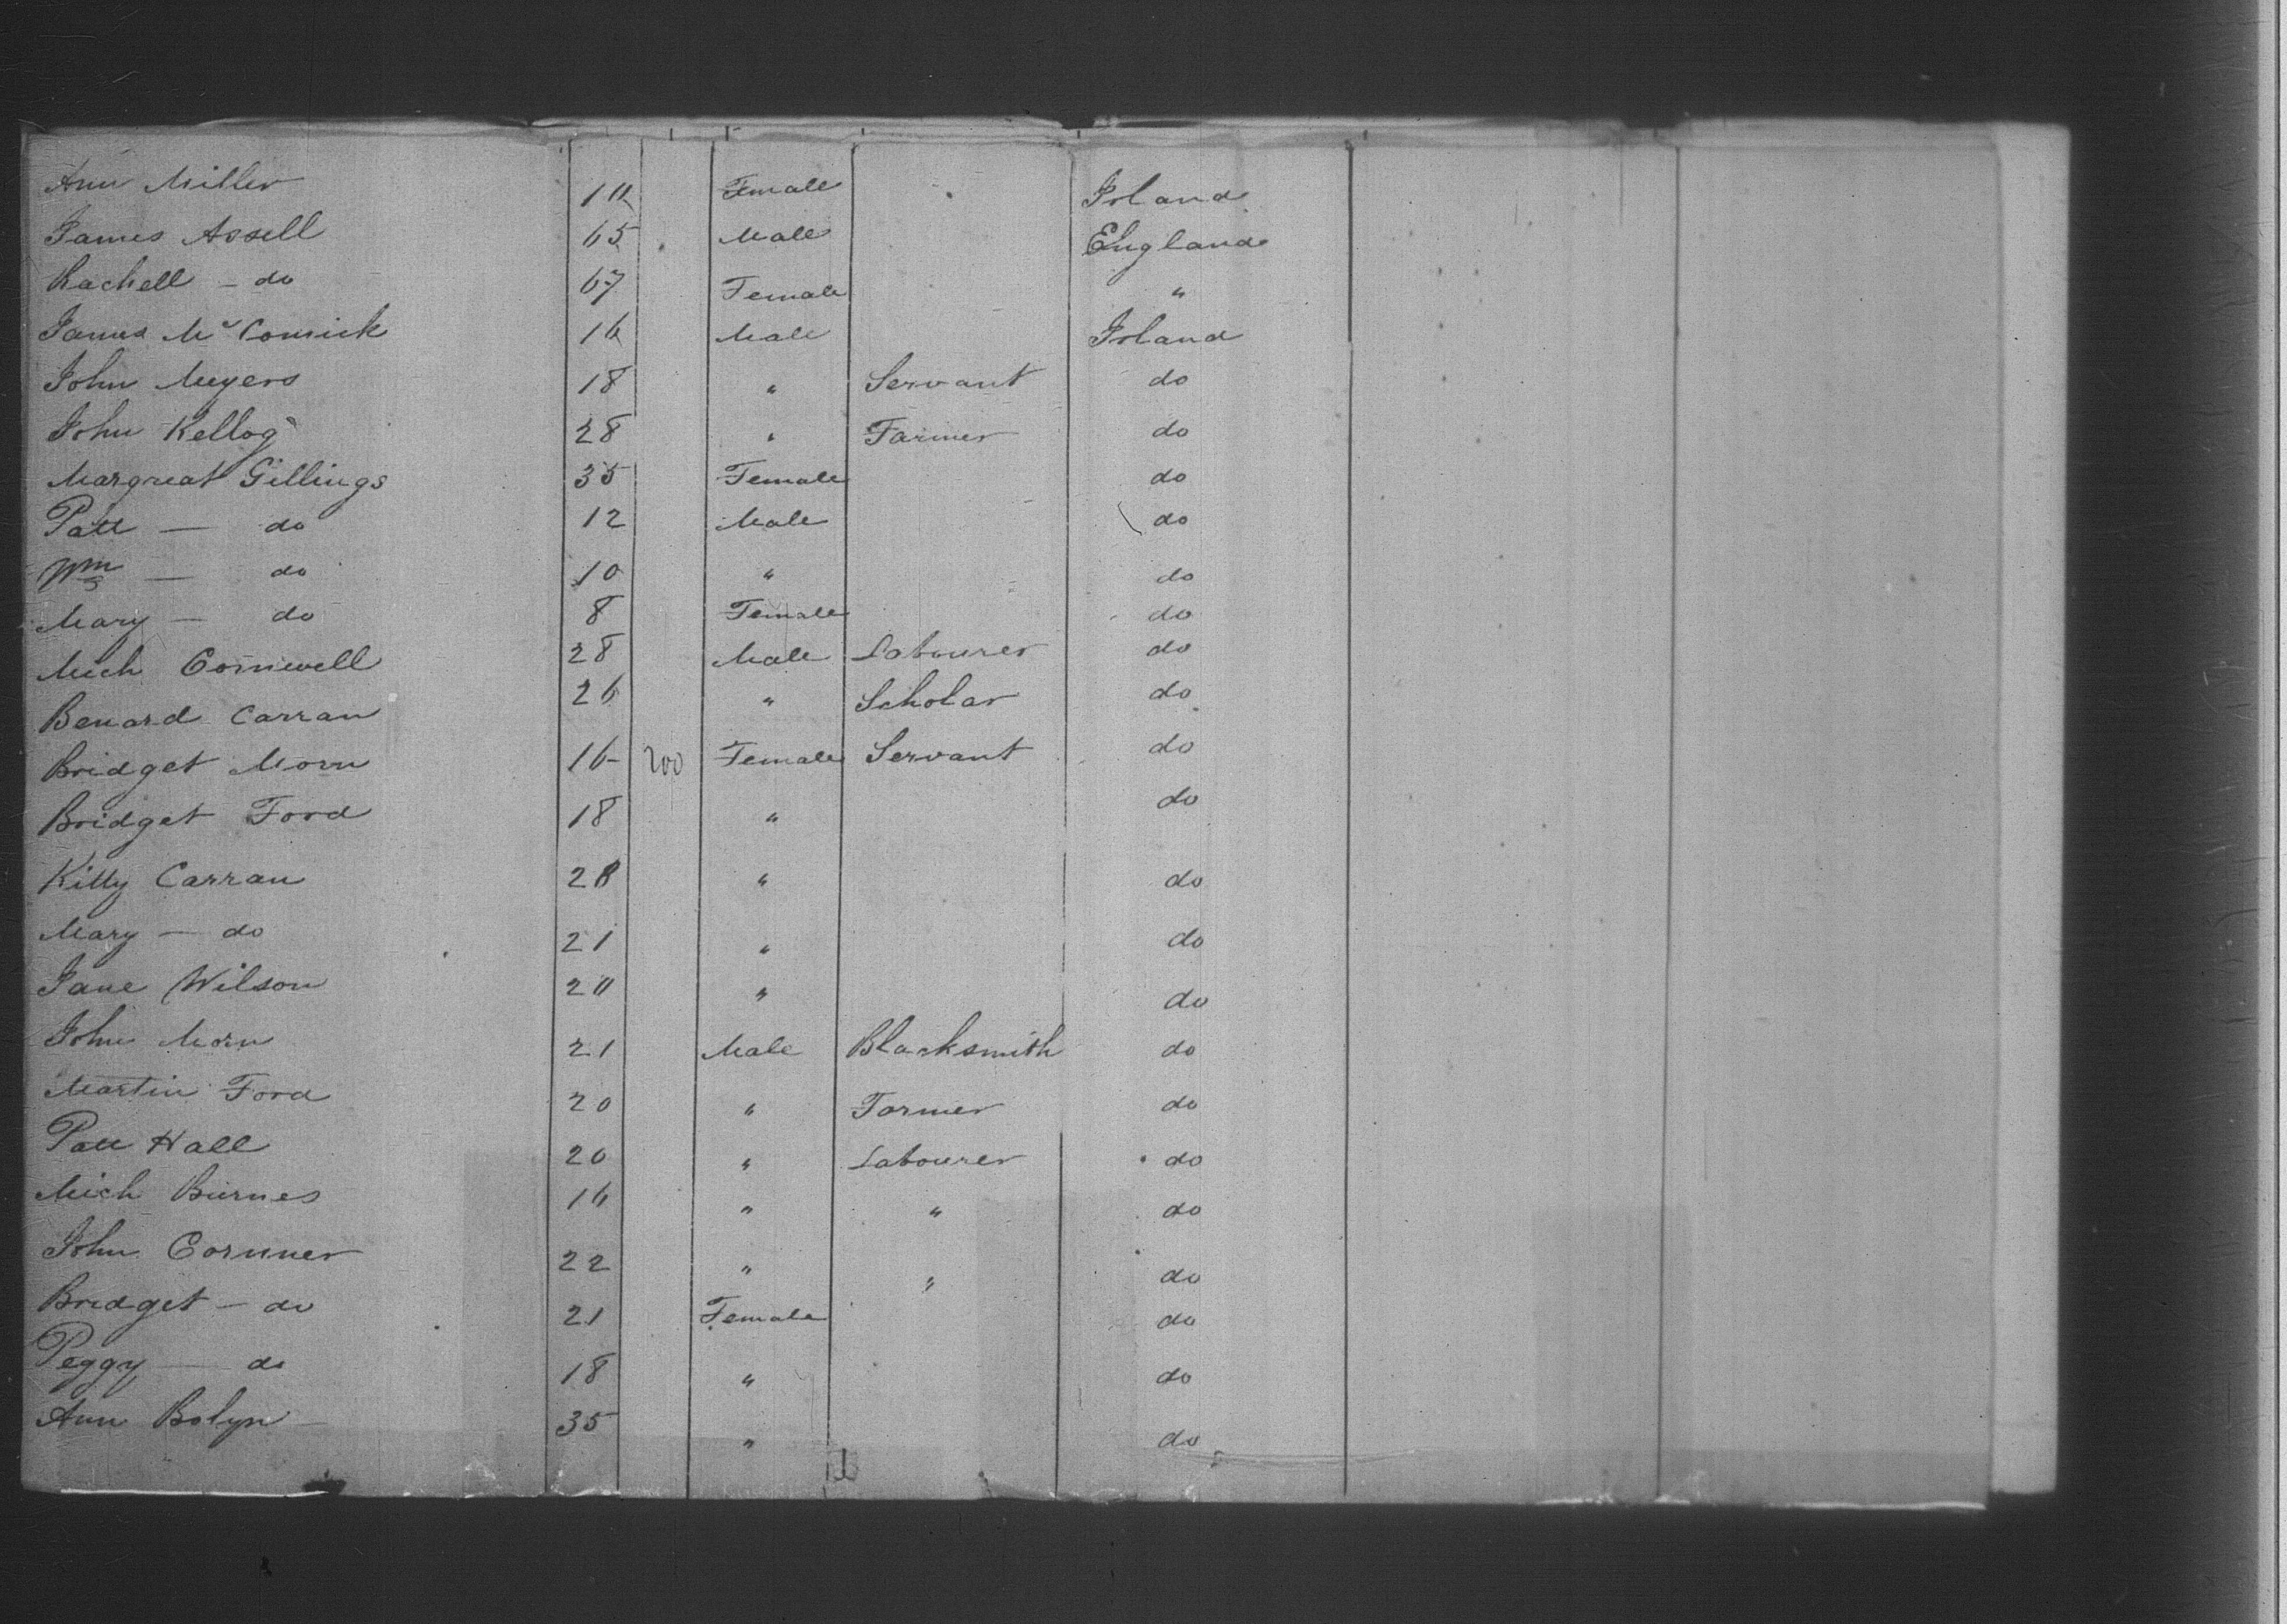 Ann Miller 14 Female Irland
James Assell 65 Male England
Rachell - do 67 Female "
James Mc Comick 16 Male Irland
John Meyers 18 " Servant do
John Kellog 28 " Farmer do
Margreat Gillings 35 Female do
Patt — do 12 Male do
Wm — do 10 " do
Mary — do 8 Female do
Mich Cornwell 28 Male Labourer do
Benard Carran 26 " Scholar do
Bridget Morn 16 - 200 Female Servant do
Bridget Ford 18 " do
Kitty Carran 28 " do
Mary — do 21 " do
Jane Wilson 24 " do
John Morn 21 Male Blacksmith do
Martin Ford 20 " Farmer do
Patt Hall 20 " Labourer do
Mich Burnes 16 " " do
John Cornner 22 " " do
Bridget - do 21 Female do
Peggy — do 18 " do
Ann Bolyn — 35 " do